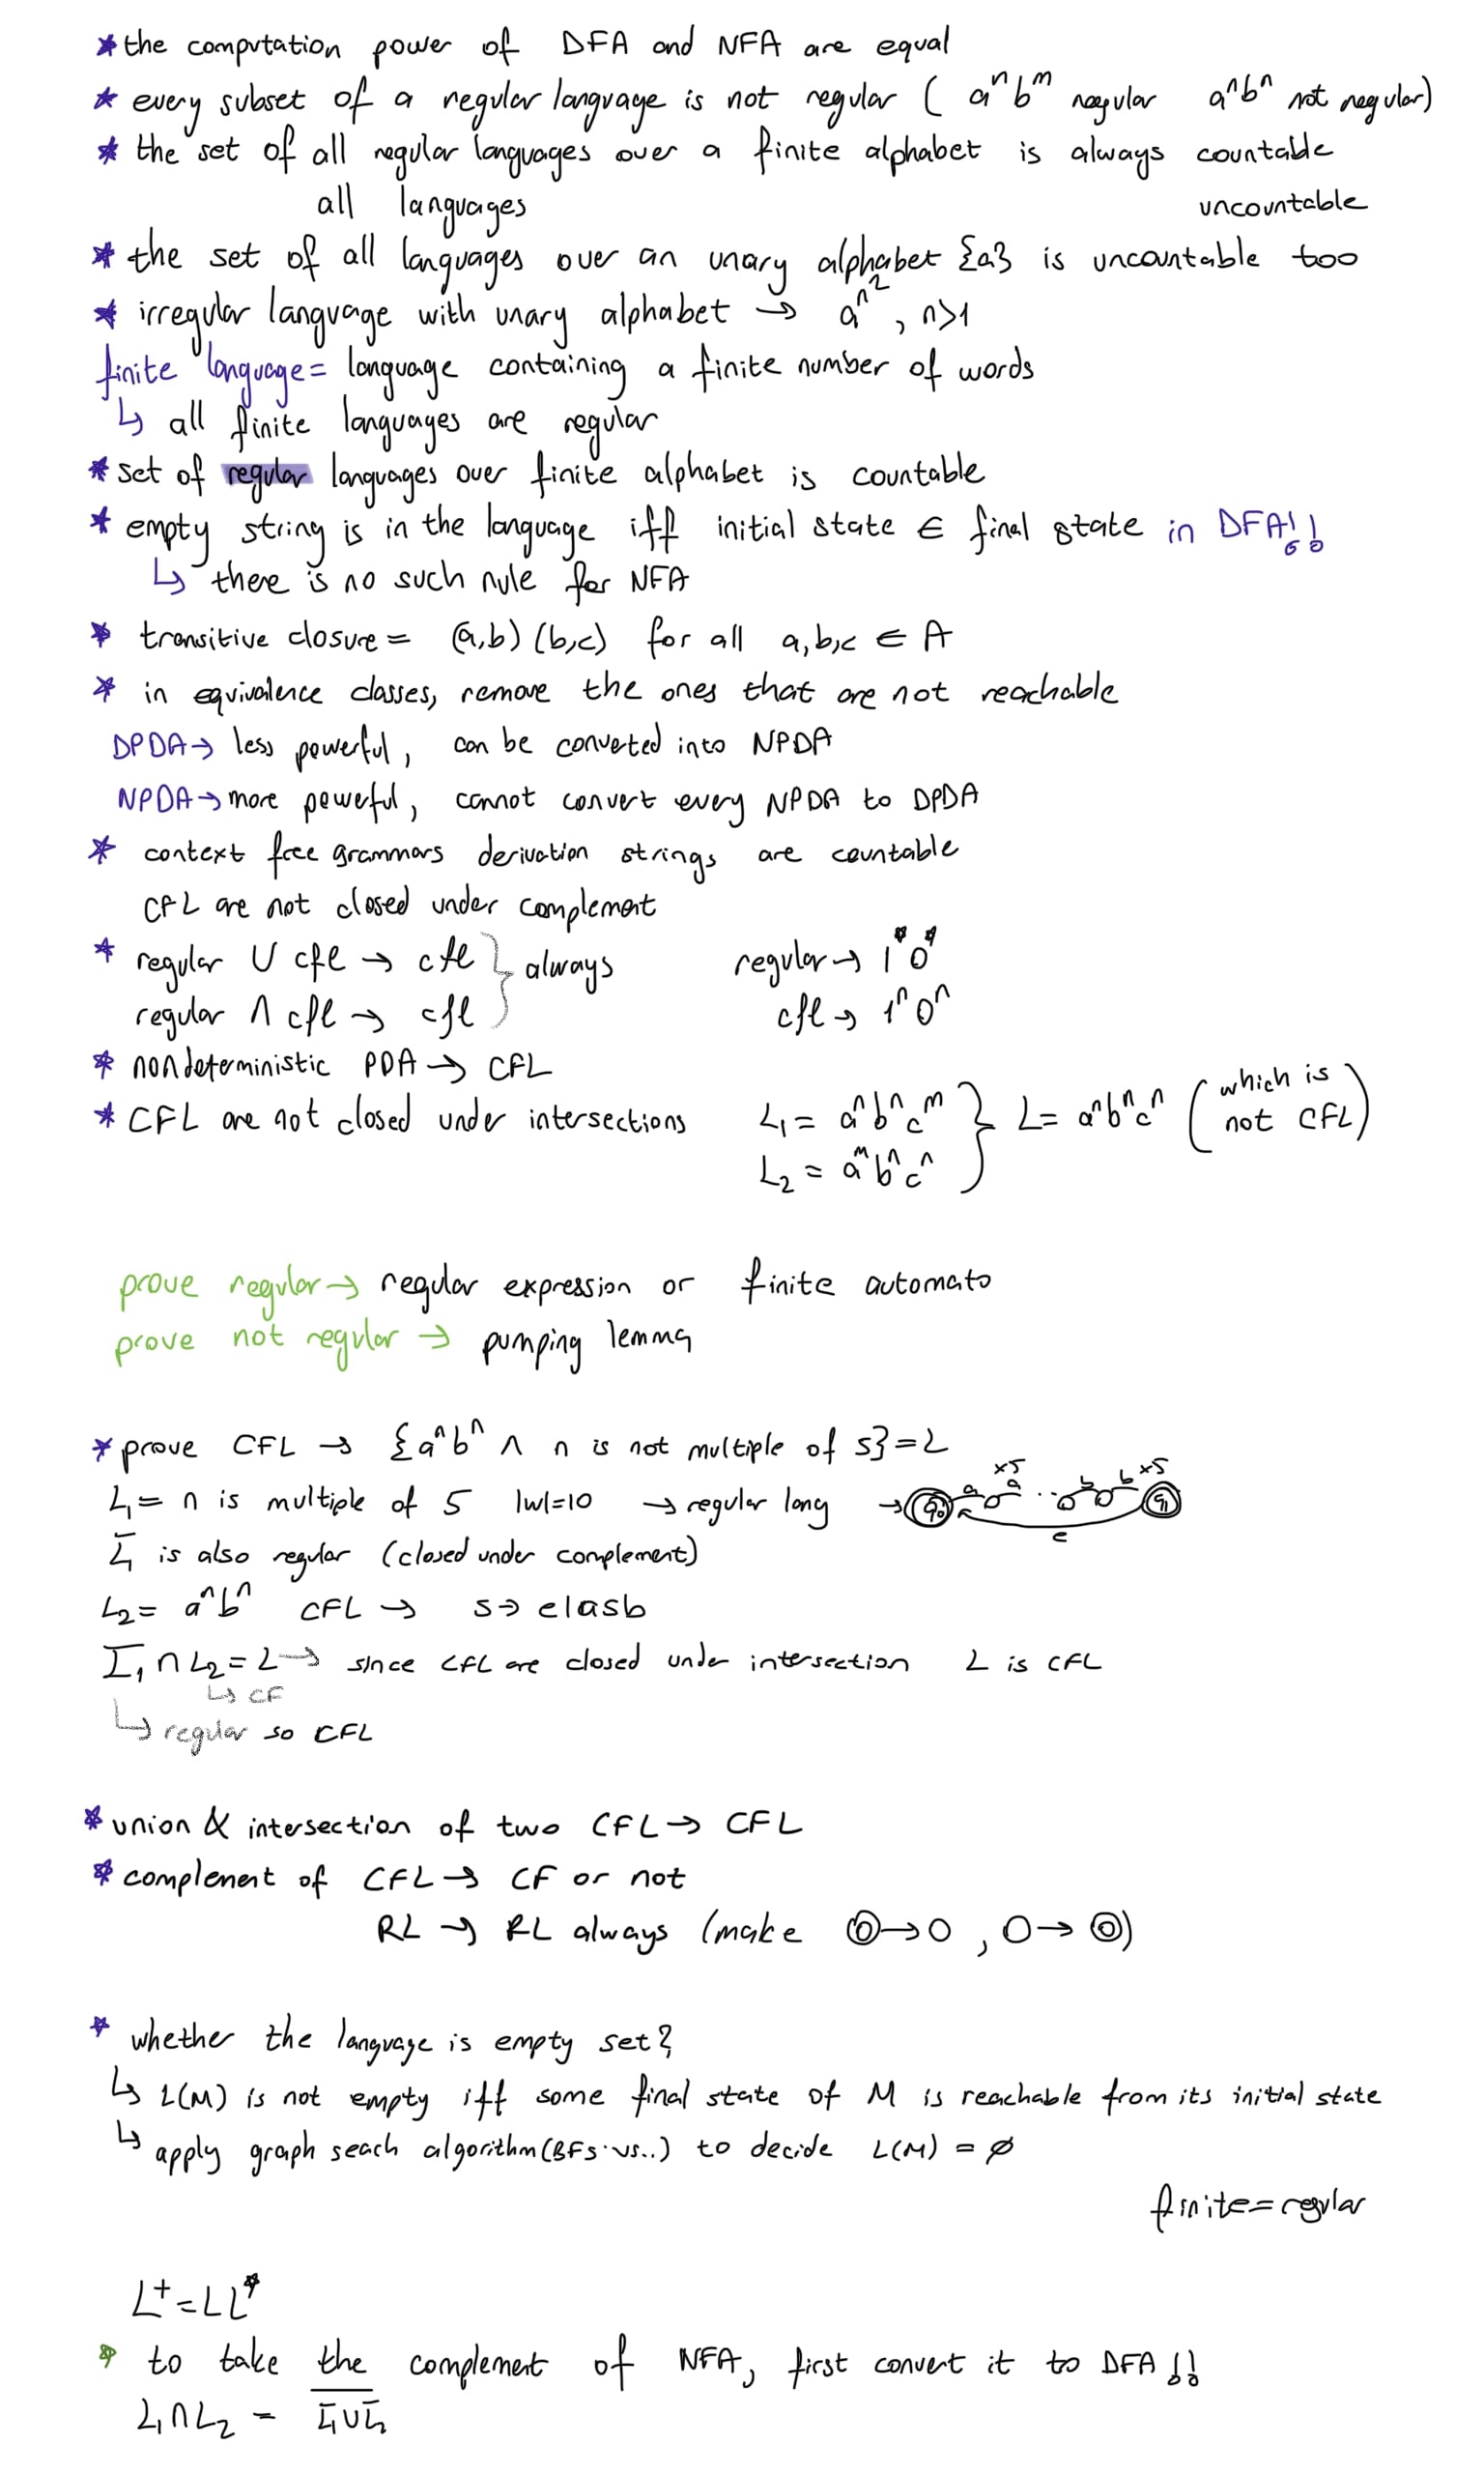 * the computation power of DFA and NFA are equal
* every subset of a regular language is not regular ( aⁿbᵐ regular aⁿbⁿ not regular)
* the set of all regular languages over a finite alphabet is always countable
all languages uncountable
* the set of all languages over an unary alphabet {a} is uncountable too
* irregular language with unary alphabet → a^n^2 , n>1
finite language = language containing a finite number of words
↳ all finite languages are regular
* set of regular languages over finite alphabet is countable
* empty string is in the language iff initial state ∈ final state in DFA!!
↳ there is no such rule for NFA
* transitive closure = (a,b) (b,c) for all a,b,c ∈ A
* in equivalence classes, remove the ones that are not reachable
DPDA → less powerful, can be converted into NPDA
NPDA → more powerful, cannot convert every NPDA to DPDA
* context free grammars derivation strings are countable
CFL are not closed under complement
* regular ∪ cfl → cfl } always regular → 1*0*
regular ∩ cfl → cfl cfl → 1ⁿ0ⁿ
* nondeterministic PDA → CFL
* CFL are not closed under intersections L₁ = aⁿbⁿcᵐ } L = aⁿbⁿcⁿ (which is not CFL)
L₂ = aᵐbⁿcⁿ
prove regular → regular expression or finite automato
prove not regular → pumping lemma
* prove CFL → {aⁿbⁿ ∧ n is not multiple of 5} = L
L₁ = n is multiple of 5 |w|=10 → regular lang → q₀ a a x5 .. b b x5 q₁ e
L̅₁ is also regular (closed under complement)
L₂ = aⁿbⁿ CFL → s → e|asb
L̅₁ ∩ L₂ = L → since CFL are closed under intersection L is CFL
↳ CF
↳ regular so CFL
* union & intersection of two CFL → CFL
* complement of CFL → CF or not
RL → RL always (make ◎ → O , O → ◎)
* whether the language is empty set?
↳ L(M) is not empty iff some final state of M is reachable from its initial state
↳ apply graph seach algorithm (BFS vs..) to decide L(M) = ∅
finite = regular
L⁺ = LL*
* to take the complement of NFA, first convert it to DFA!!
L₁ ∩ L₂ = \overline{L̅₁ ∪ L̅₂}